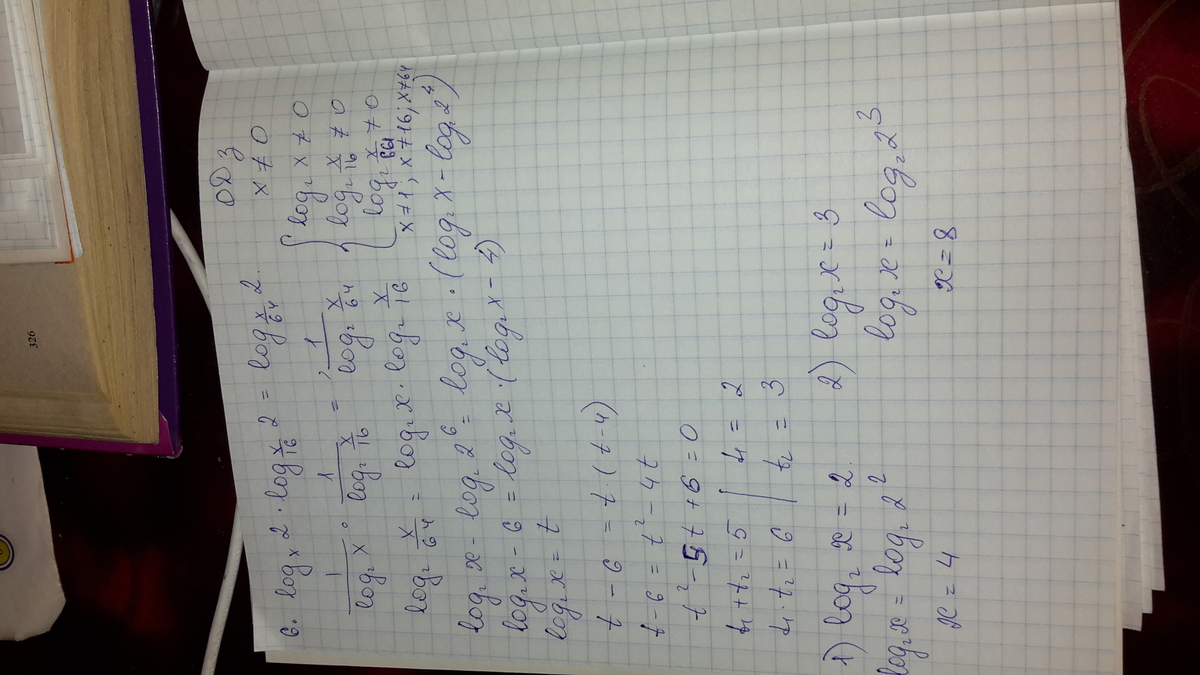 6. log_x 2 · log_{x/16} 2 = log_{x/64} 2.
ОДЗ
x ≠ 0
1/(log₂ x) · 1/(log₂ x/16) = 1/(log₂ x/64)
{ log₂ x ≠ 0
log₂ x/16 ≠ 0
log₂ x/64 ≠ 0
x ≠ 1; x ≠ 16; x ≠ 64
log₂ x/64 = log₂ x · log₂ x/16
log₂ x - log₂ 2⁶ = log₂ x · (log₂ x - log₂ 2⁴)
log₂ x - 6 = log₂ x · (log₂ x - 4)
log₂ x = t
t - 6 = t · (t - 4)
t - 6 = t² - 4t
t² - 5t + 6 = 0
t₁ + t₂ = 5 | t₁ = 2
t₁ · t₂ = 6 | t₂ = 3
1) log₂ x = 2.
log₂ x = log₂ 2²
x = 4
2) log₂ x = 3
log₂ x = log₂ 2³
x = 8
326